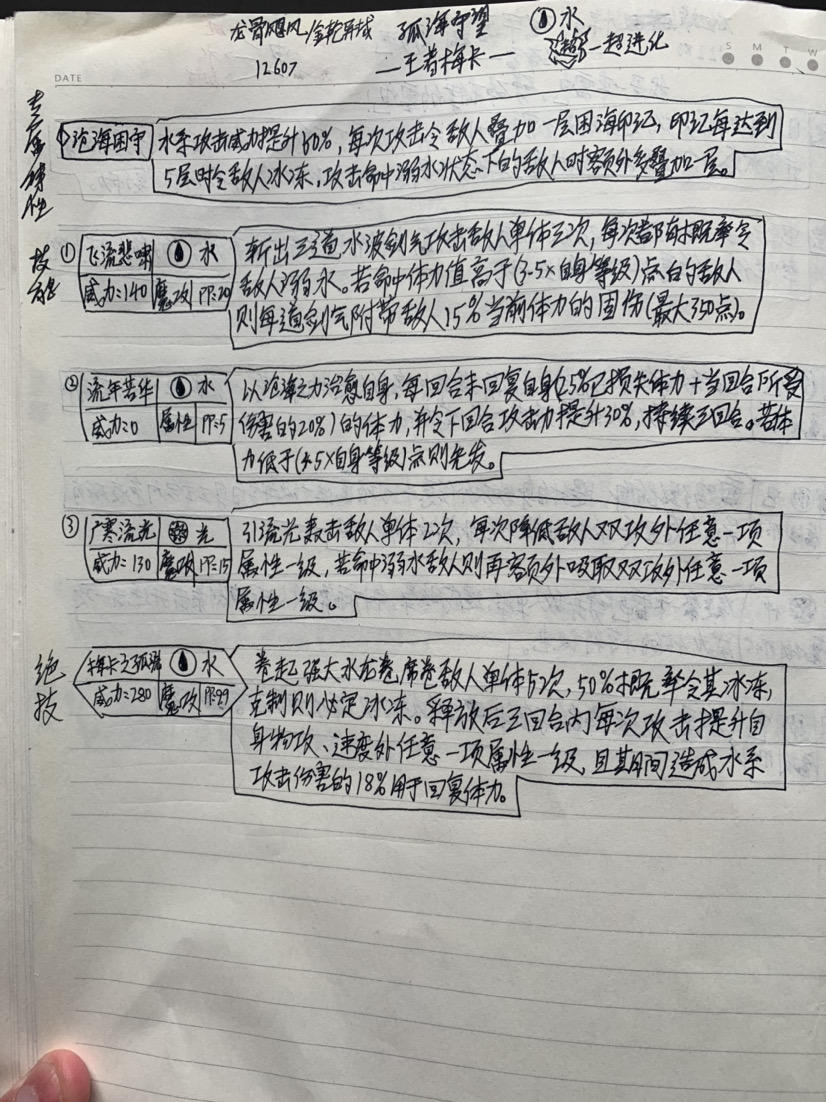 龙骨飓风/金轮异域 孤海守望 水
12607 —王者梅卡— 超 —超进化
S M T W
DATE
专属特性
沧海困宇 水系攻击威力提升50%,每次攻击令敌人叠加一层困海印记,印记每达到
5层时令敌人冰冻,攻击命中溺水状态下的敌人时额外多叠加一层。
技能
① 飞流悲啸 水 斩出三道水波剑气攻击敌人单体三次,每次都有概率令
威力=140 魔攻 PP=20 敌人溺水。若命中体力值高于(3.5×自身等级)点的敌人
则每道剑气附带敌人15%当前体力的固伤(最大350点)。
② 流年若华 水 以沧海之力治愈自身,每回合末回复自身(25%已损失体力+当回合所受
威力=0 属性 PP=5 伤害的20%)的体力,并令下回合攻击力提升30%,持续三回合。若体
力低于(3.5×自身等级)点则先发。
③ 广寒流光 光 引流光轰击敌人单体2次,每次降低敌人双攻外任意一项
威力=130 魔攻 PP=15 属性一级,若命中溺水敌人则再额外吸取双攻外任意一项
属性一级。
绝技
梅卡之孤 水 卷起强大水龙卷,席卷敌人单体5次,50%概率令其冰冻,
威力=280 魔攻 PP=99 克制则必定冰冻。释放后三回合内每次攻击提升自
身物攻、速度外任意一项属性一级,且其期间造成水系
攻击伤害的18%用于回复体力。